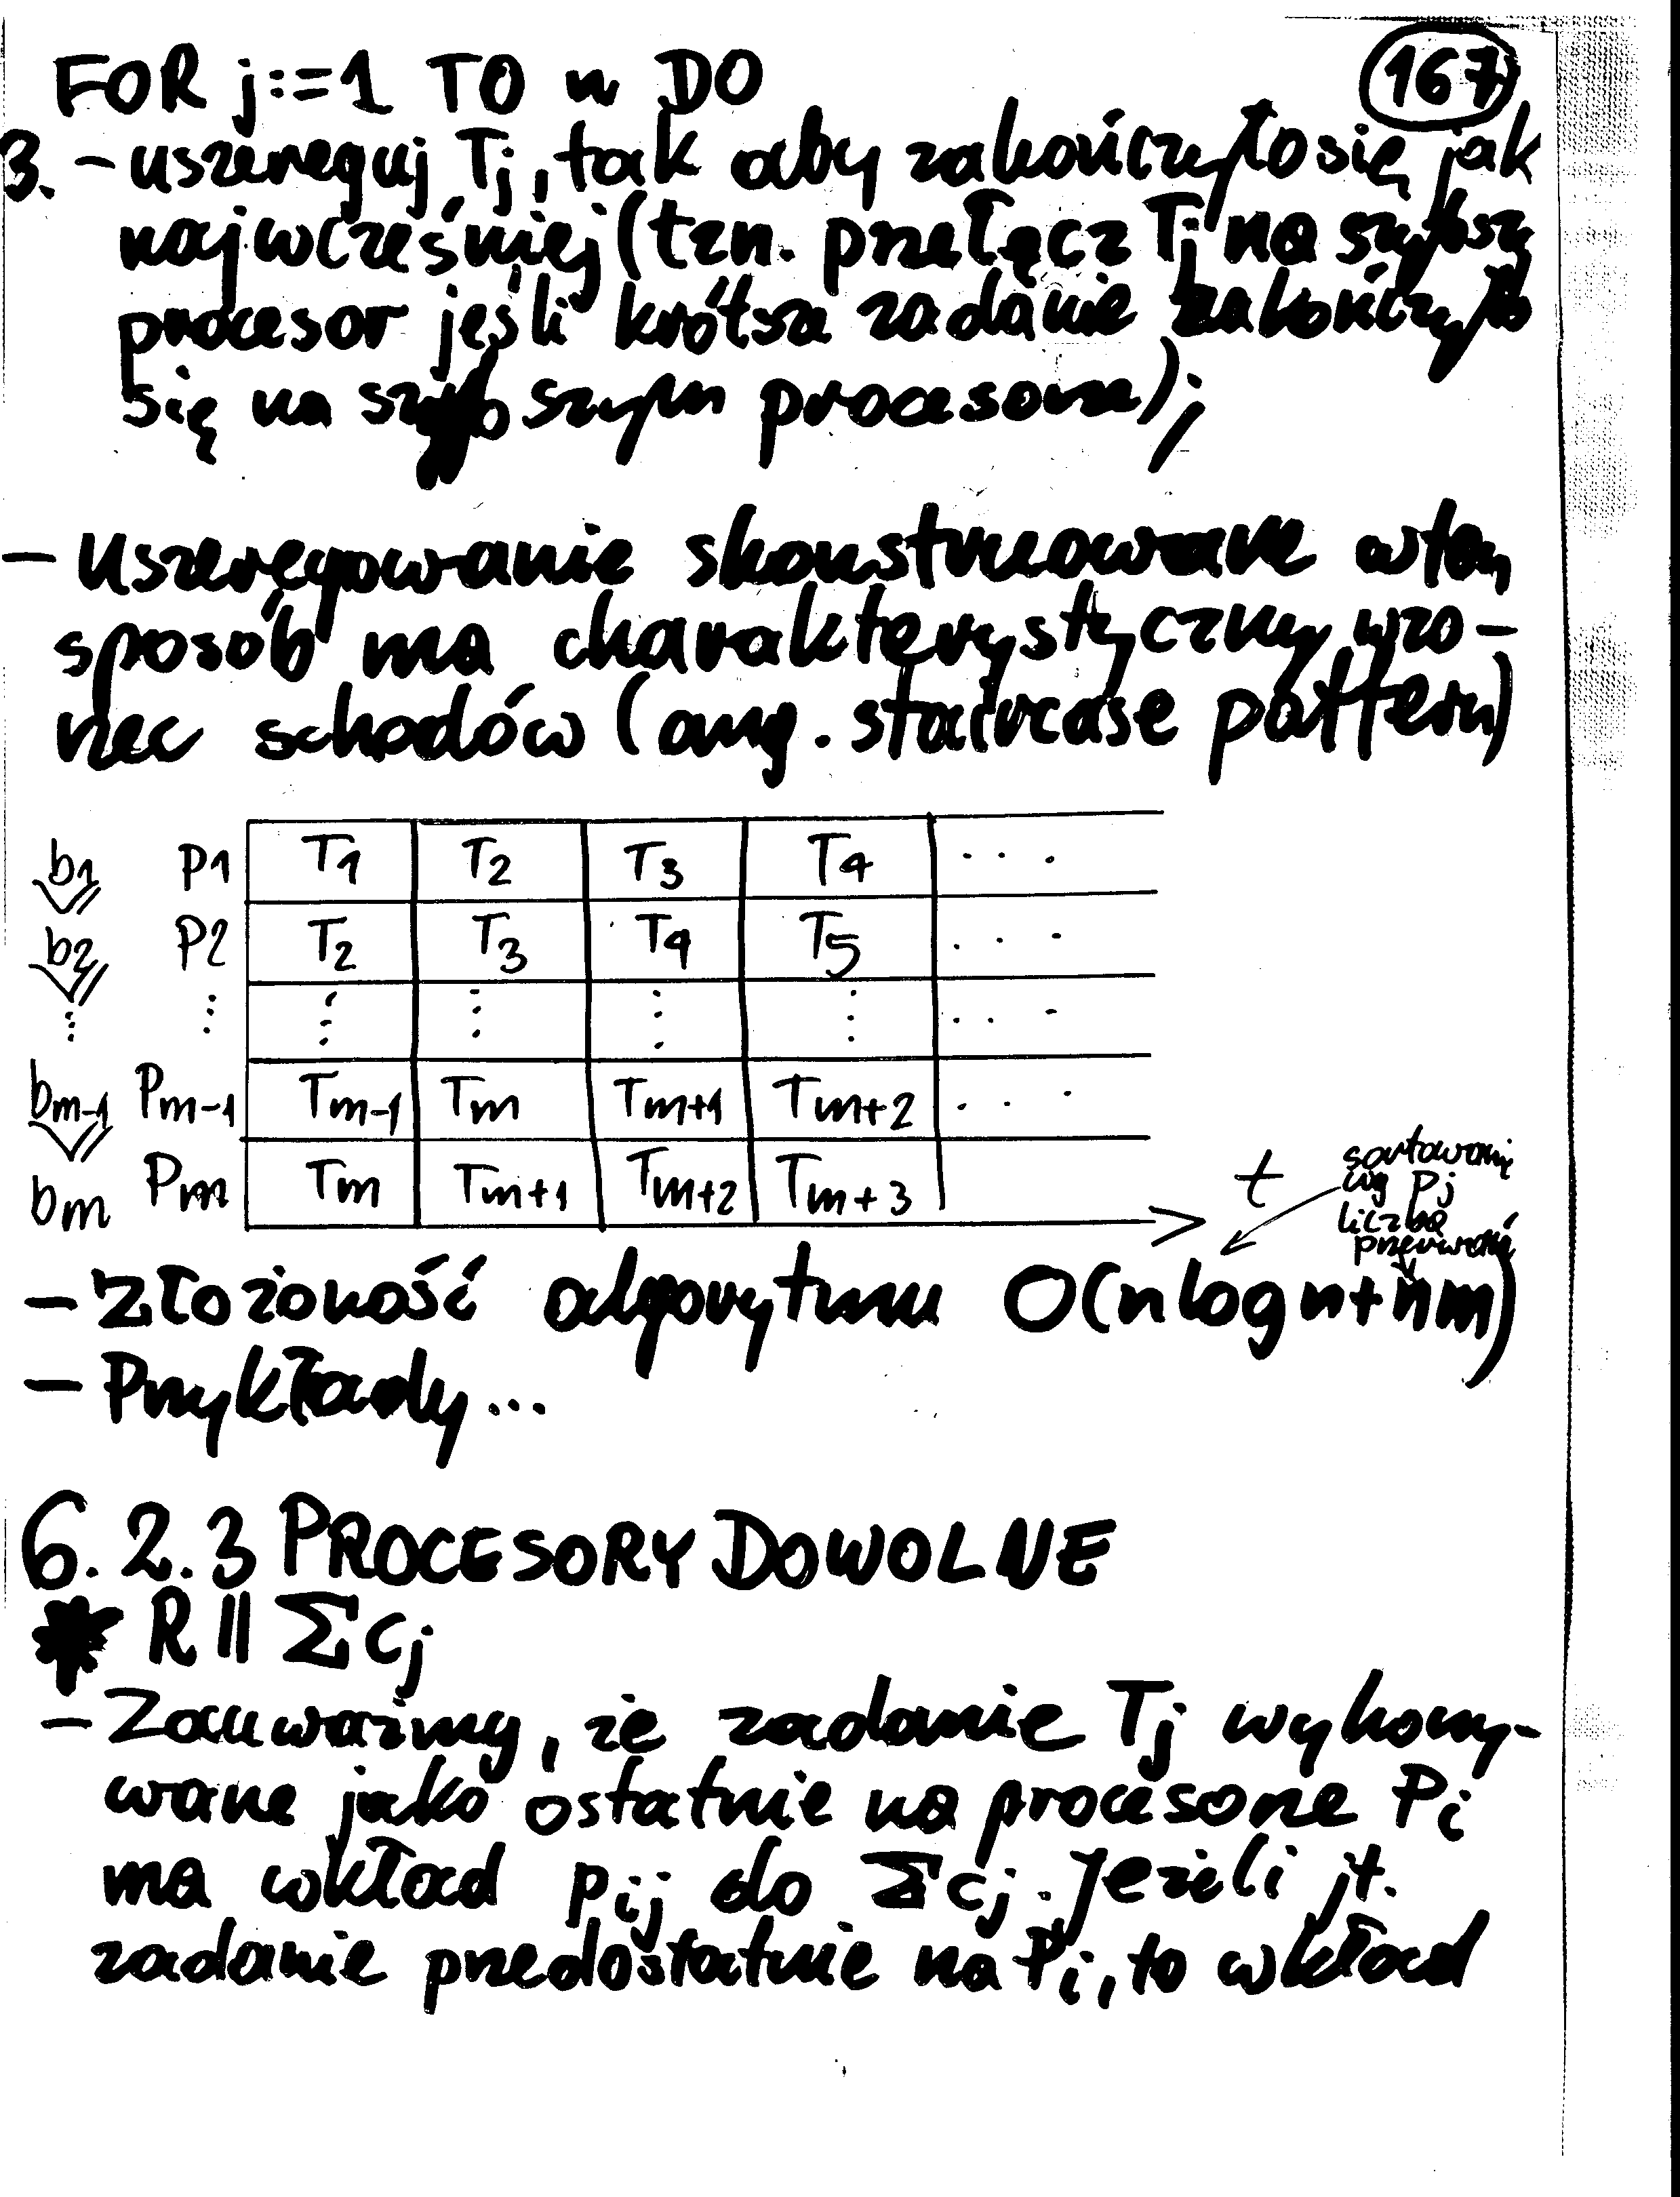 167
FOR j:=1 TO n DO
3. – uszereguj Tj, tak aby zakończyło się jak
najwcześniej (tzn. przełącz Tj na szybszy
procesor jeśli krótsze zadanie zakończyło
się na szybszym procesorze);
– Uszeregowanie skonstruowane w ten
sposób ma charakterystyczny wzo-
rzec schodów (ang. staircase pattern)
b1 P1 T1 T2 T3 T4 ...
b2 P2 T2 T3 T4 T5 ...
⋮ ⋮ ⋮ ⋮ ⋮ ⋮ ...
bm-1 Pm-1 Tm-1 Tm Tm+1 Tm+2 ...
bm Pm Tm Tm+1 Tm+2 Tm+3
t
sortowanie
wg pj
liczba
przerwań
– Złożoność algorytmu O(n log n + nm)
– Przykłady...
6.2.3 PROCESORY DOWOLNE
* R || ΣCj
– Zauważmy, że zadanie Tj wykony-
wane jako ostatnie na procesorze Pi
ma wkład pij do Σcj. Jeżeli jt.
zadanie przedostatnie na Pi, to wkład